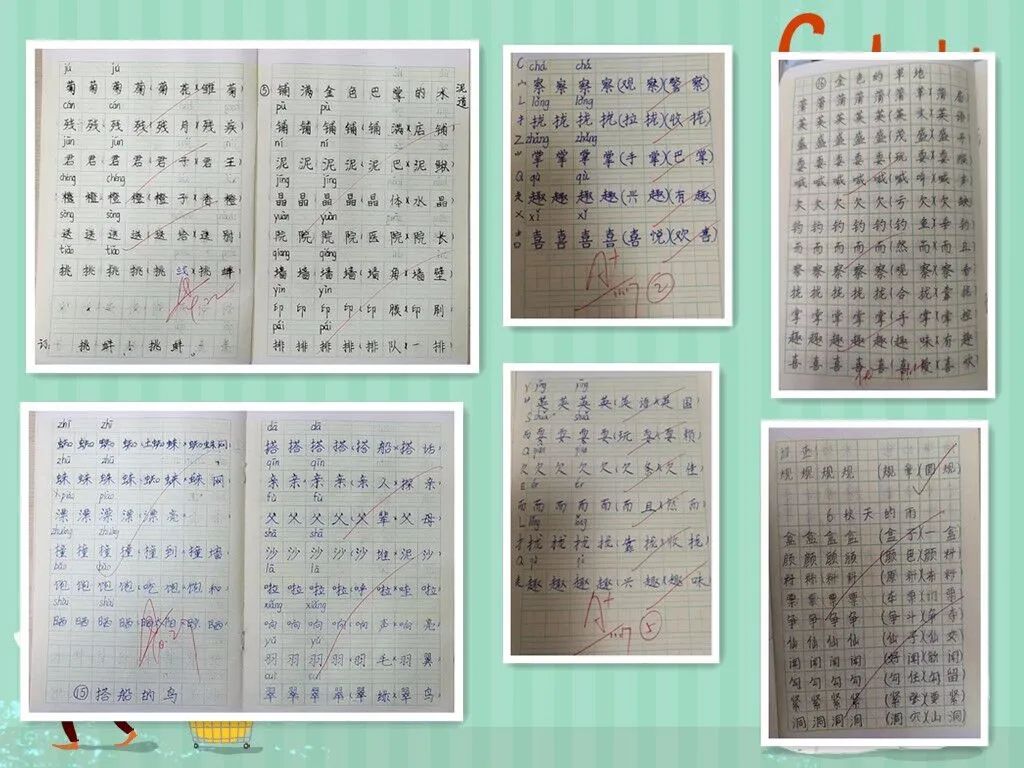 jú jú
菊 菊 菊 菊(菊 花)(雏 菊)
cán cán
残 残 残 残(残 月)(残 疾)
jūn jūn
君 君 君 君(君 子)(君 王)
chéng chéng
橙 橙 橙 橙(橙 子)(香 橙)
sòng sòng
送 送 送 送(送 给)(送 别)
tiāo tiāo
挑 挑 挑 挑
挑
⑤ 铺 满 金 色 巴 掌 的 水 泥道
pū pù
铺 铺 铺 铺(铺 满)(店 铺)
ní ní
泥 泥 泥 泥(泥 巴)(泥
jīng jīng
晶 晶 晶 晶(晶 体)(水 晶)
yuàn yuàn
院 院 院 院(医 院)(院 长)
qiáng qiáng
墙 墙 墙 墙(墙 角)(墙 壁)
yìn yìn
印 印 印 印 印 刷
pái pái
排 排 排 排(排 队)(一 排)
zhī zhī
蜘 蜘 蜘 蜘
zhū zhū
蛛 蛛 蛛 蛛(蜘 蛛)(蛛 网)
piāo piào
漂 漂 漂 漂(漂 亮)
zhuàng zhuàng
撞 撞 撞 撞(撞 到)(撞 墙)
bǎo bǎo
饱 饱 饱 饱(吃 饱)(饱 和)
shài shài
晒 晒 晒 晒
⑮ 搭 船 的 鸟
dā dā
搭 搭 搭 搭(搭 船)(搭 话)
qīn qīn
亲 亲 亲 亲(亲 人)(探 亲)
fù fù
父 父 父 父(父 辈)(父 母)
shā shā
沙 沙 沙 沙(沙 堆)(泥 沙)
lā lā
啦 啦 啦 啦(呼 啦)(哇 啦)
xiǎng xiǎng
响 响 响 响(响 声)(响 亮)
yǔ yǔ
羽 羽 羽 羽(羽 毛)(羽 翼)
cuì cuì
翠 翠 翠 翠(翠 绿)(翠 鸟)
C chá chá
察 察 察 察(观 察)(警 察)
L lǒng lǒng
扌 拢 拢 拢 拢(拉 拢)(收 拢)
Z zhǎng zhǎng
掌 掌 掌 掌(手 掌)(巴 掌)
Q qù qù
趣 趣 趣 趣(兴 趣)(有 趣)
X xǐ xǐ
喜 喜 喜 喜(喜 悦)(欢 喜)
A+
②
Y yīng yīng
英 英 英 英(英 语)(英 国)
S shuǎ shuǎ
耍 耍 耍 耍(玩 耍)(耍 赖)
欠 欠 欠 欠(欠 条)(欠 佳)
E ér ér
而 而 而 而(而 且)(然 而)
L lǒng lǒng
扌 拢 拢 拢 拢(靠 拢)(收 拢)
Q qù qù
趣 趣 趣 趣(兴 趣)(趣 味)
A+
⑤
⑯ 金 色 的 草 地
蒲 蒲 蒲 蒲(蒲 草)(蒲 扇)
英 英 英 英 英 语
盛 盛 盛 盛(茂 盛)(盛 开)
耍 耍 耍 耍(玩 耍)(耍 猴)
喊 喊 喊 喊(喊 叫)(喊 声)
欠 欠 欠 欠(亏 欠)(欠 缺)
钓 钓 钓 钓(钓 鱼)(垂 钓)
而 而 而 而(然 而)(而 且)
察 察 察 察(观 察)(察 看)
拢 拢 拢 拢(合 拢)(靠 拢)
掌 掌 掌 掌(手 掌)(掌 控)
趣 趣 趣 趣(趣 味)(有 趣)
喜 喜 喜 喜(喜 爱)(喜 欢)
规 规 规 规 (规 章)(圆 规)
6 秋 天 的 雨
盒 盒 盒 盒 (盒 子)(一 盒)
颜 颜 颜 颜 (颜 色)(颜 料)
料 料 料 料 (原 料)(布 料)
票 票 票 票 (车 票)(门 票)
争 争 争 争 (争 斗)(争 夺)
仙 仙 仙 仙 (仙 子)(仙 女)
闻 闻 闻 闻 (好 闻)(新 闻)
勾 勾 勾 勾 (勾 住)(勾 留)
紧 紧 紧 紧 (紧 张)(要 紧)
洞 洞 洞 洞 (洞 穴)(山 洞)